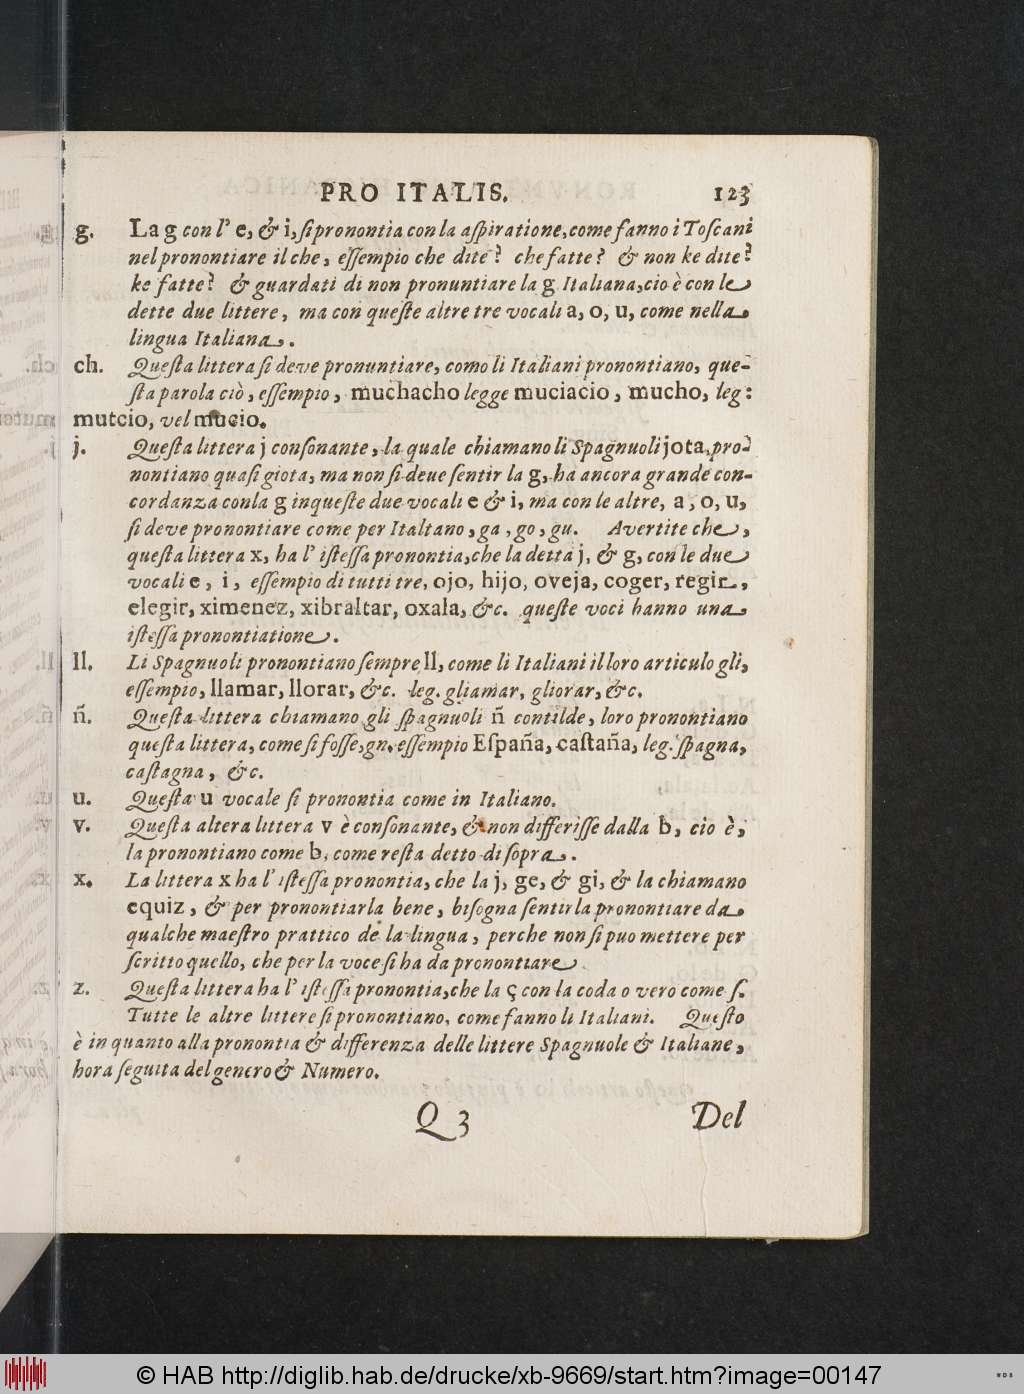 PRO ITALIS. 123
g. La g con l' e, & i, ſi pronontia con la aſpiratione, come fanno i Toſcani
nel pronontiare il che, eſſempio che dite? che fatte? & non ke dite?
ke fatte? & guardati di non pronuntiare la g Italiana, cio è con le
dette due littere, ma con queſte altre tre vocali a, o, u, come nella
lingua Italiana.
ch. Queſta littera ſi deve pronuntiare, como li Italiani pronontiano, que-
ſta parola ciò, eſſempio, muchacho legge muciacio, mucho, leg:
mutcio, vel mucio.
j. Queſta littera j conſonante, la quale chiamano li Spagnuoli jota, pro-
nontiano quaſi giota, ma non ſi deue ſentir la g, ha ancora grande con-
cordanza con la g in queſte due vocali e & i, ma con le altre, a, o, u,
ſi deve pronontiare come per Italtano, ga, go, gu. Avertite che,
queſta littera x, ha l' iſteſſa pronontia, che la detta j, & g, con le due
vocali e, i, eſſempio di tutti tre, ojo, hijo, oveja, coger, regir,
elegir, ximenez, xibraltar, oxala, &c. queſte voci hanno una
iſteſſa pronontiatione.
ll. Li Spagnuoli pronontiano ſempre ll, come li Italiani il loro articulo gli,
eſſempio, llamar, llorar, &c. leg. gliamar, gliorar, &c.
ñ. Queſta littera chiamano gli ſpagnuoli ñ con tilde, loro pronontiano
queſta littera, come ſi foſſe, gn, eſſempio Eſpaña, caſtaña, leg. ſpagna,
caſtagna, &c.
u. Queſta u vocale ſi pronontia come in Italiano.
v. Queſta altera littera v è conſonante, & non differiſſe dalla b, cio è,
la pronontiano come b, come reſta detto di ſopra.
x. La littera x ha l' iſteſſa pronontia, che la j, ge, & gi, & la chiamano
equiz, & per pronontiarla bene, biſogna ſentirla pronontiare da
qualche maeſtro prattico de la lingua, perche non ſi puo mettere per
ſcritto quello, che per la voce ſi ha da pronontiare.
z. Queſta littera ha l' iſteſſa pronontia, che la ç con la coda o vero come ſ.
Tutte le altre littere ſi pronontiano, come fanno li Italiani. Queſto
è in quanto alla pronontia & differenza delle littere Spagnuole & Italiane,
hora ſeguita del genero & Numero.
Q 3 Del
© HAB http://diglib.hab.de/drucke/xb-9669/start.htm?image=00147